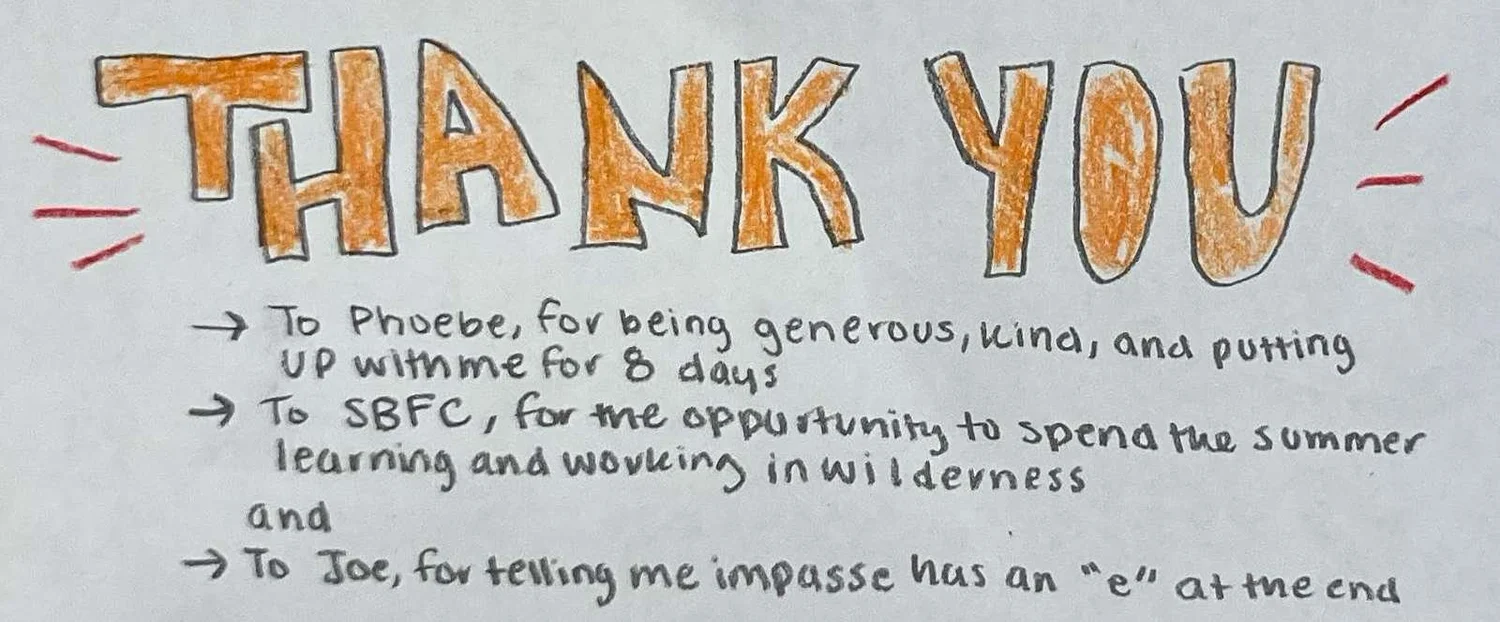 THANK YOU
→ To Phoebe, for being generous, kind, and putting
up with me for 8 days
→ To SBFC, for the oppurtunity to spend the summer
learning and working in wilderness
and
→ To Joe, for telling me impasse has an "e" at the end